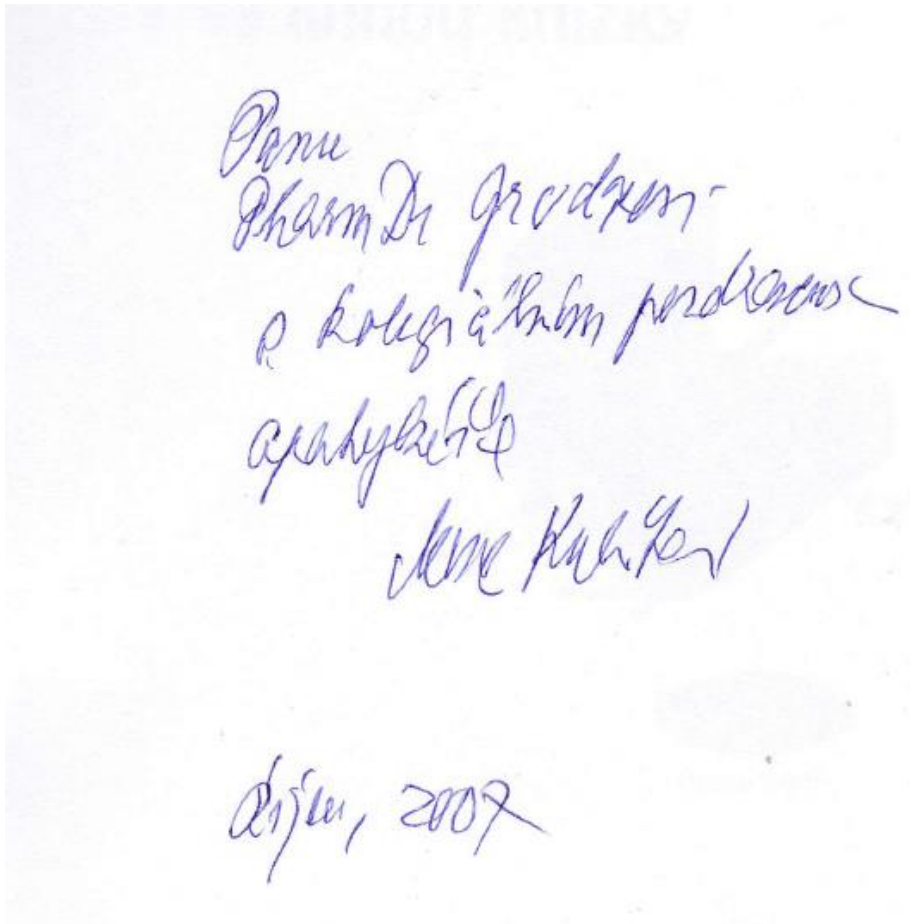 Panu
PharmDr Grodzovi
s kolegiálním pozdravem
apatykář
říjen, 2007